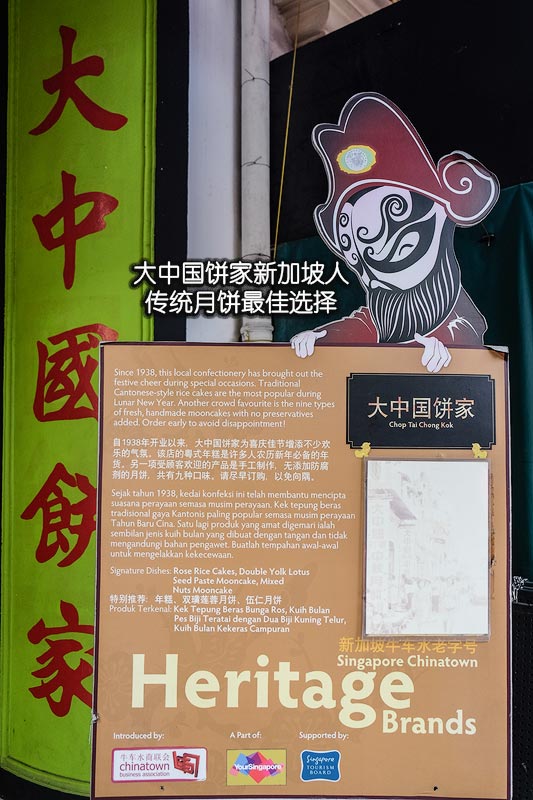 大中國餅家
大中国饼家新加坡人
传统月饼最佳选择
Since 1938, this local confectionery has brought out the
festive cheer during special occasions. Traditional
Cantonese-style rice cakes are the most popular during
Lunar New Year. Another crowd favourite is the nine types
of fresh, handmade mooncakes with no preservatives
added. Order early to avoid disappointment!
自1938年开业以来，大中国饼家为喜庆佳节增添不少欢
乐的气氛。该店的粤式年糕是许多人农历新年必备的年
货。另一项受顾客欢迎的产品是手工制作，无添加防腐
剂的月饼，共有九种口味。请尽早订购，以免向隅。
Sejak tahun 1938, kedai konfeksi ini telah membantu mencipta
suasana perayaan semasa musim perayaan. Kek tepung beras
tradisional gaya Kantonis paling popular semasa musim perayaan
Tahun Baru Cina. Satu lagi produk yang amat digemari ialah
sembilan jenis kuih bulan yang dibuat dengan tangan dan tidak
mengandungi bahan pengawet. Buatlah tempahan awal-awal
untuk mengelakkan kekecewaan.
Signature Dishes: Rose Rice Cakes, Double Yolk Lotus
Seed Paste Mooncake, Mixed
Nuts Mooncake
特别推荐: 年糕、双璜莲蓉月饼、伍仁月饼
Produk Terkenal: Kek Tepung Beras Bunga Ros, Kuih Bulan
Pes Biji Teratai dengan Dua Biji Kuning Telur,
Kuih Bulan Kekeras Campuran
大中国饼家
Chop Tai Chong Kok
新加坡牛车水老字号
Singapore Chinatown
Heritage
Brands
Introduced by:
牛车水商联会
chinatown
business association
A Part of:
YourSingapore
Supported by:
Singapore
TOURISM
BOARD